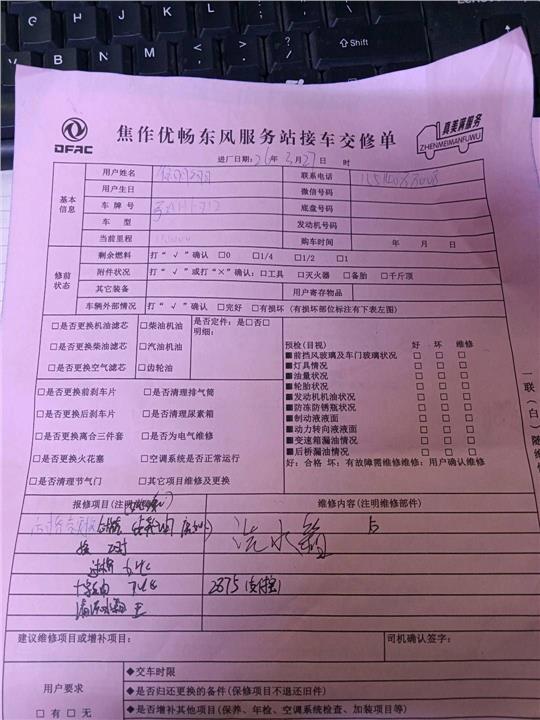 Shift
DFAC
焦作优畅东风服务站接车交修单
真美满服务
ZHENMEIMANFUWU
进厂日期: 26年 3月 27日 时
基本信息
用户姓名
联系电话
用户生日
微信号码
车牌号
底盘号码
车型
发动机号码
当前里程
购车时间 年 月 日
修前状态
剩余燃料 打“√”确认 □0 □1/4 □1/2 □1
附件状况 打“√”或打“×”确认: □工具 □灭火器 □备胎 □千斤顶
其它装备
用户寄存物品
车辆外部情况 打“√”确认 □完好 □有损坏 (有损坏部位标注有下表左图)
□是否更换机油滤芯 □柴油机油 是否定件: 是□否□
□是否更换柴油滤芯 □汽油机油 明细:
□是否更换空气滤芯 □齿轮油
预检(目视) 好 坏 维修
■前挡风玻璃及车门玻璃状况 □ □ □
■灯具情况 □ □ □
■油量状况 □ □ □
■轮胎状况 □ □ □
■发动机机油状况 □ □ □
■防冻防锈瓶状况 □ □ □
■制动液液面 □ □ □
■动力转向液液面 □ □ □
■变速箱漏油情况 □ □ □
■后桥漏油情况 □ □ □
好: 合格 坏: 有故障需维修维修: 用户确认维修
□是否更换前刹车片 □是否清理排气筒
□是否更换后刹车片 □是否清理尿素箱
□是否更换离合三件套 □是否为电气维修
□是否更换火花塞 □空调系统是否正常运行
□是否清理节气门 □其它项目维修及更换
一联(白)随维修
报修项目(注明
维修内容(注明维修部件)
洗水箱
2875 (支付宝)
建议维修项目或增补项目:
司机确认签字:
用户要求
□有 □无
◆交车时限
◆是否归还更换的备件(保修项目不退还旧件)
◆是否增补其他项目(保养、年检、空调系统检查、加装项目等)